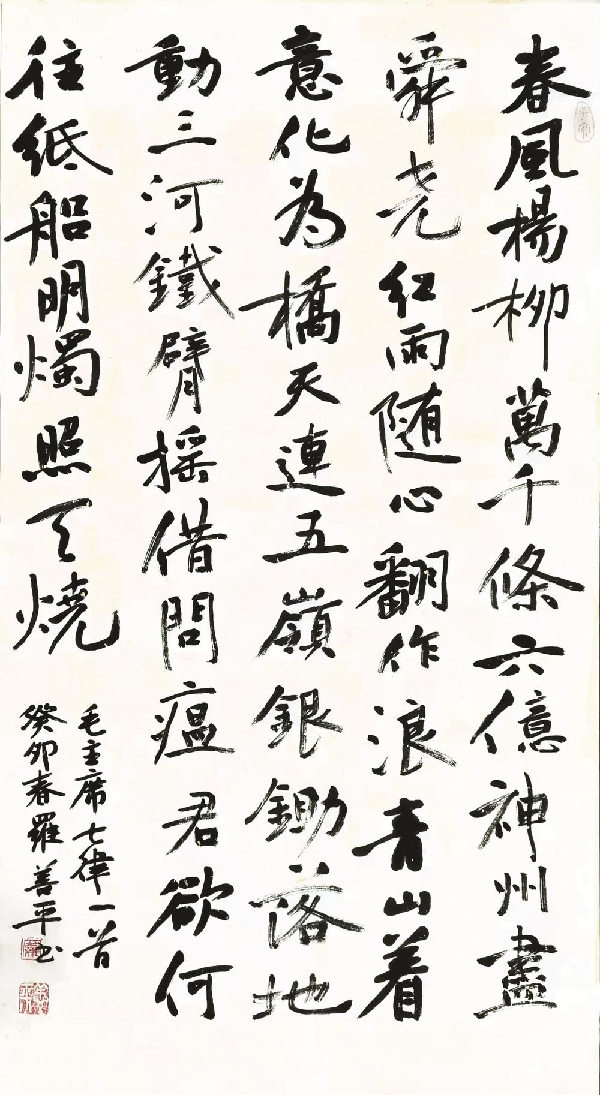 春風楊柳萬千條六億神州盡
舜尧红雨随心翻作浪青山着
意化为橋天連五嶺銀鋤落地
動三河鐵臂摇借問瘟君欲何
往纸船明燭照天燒
毛主席七律一首
癸卯春羅善平书